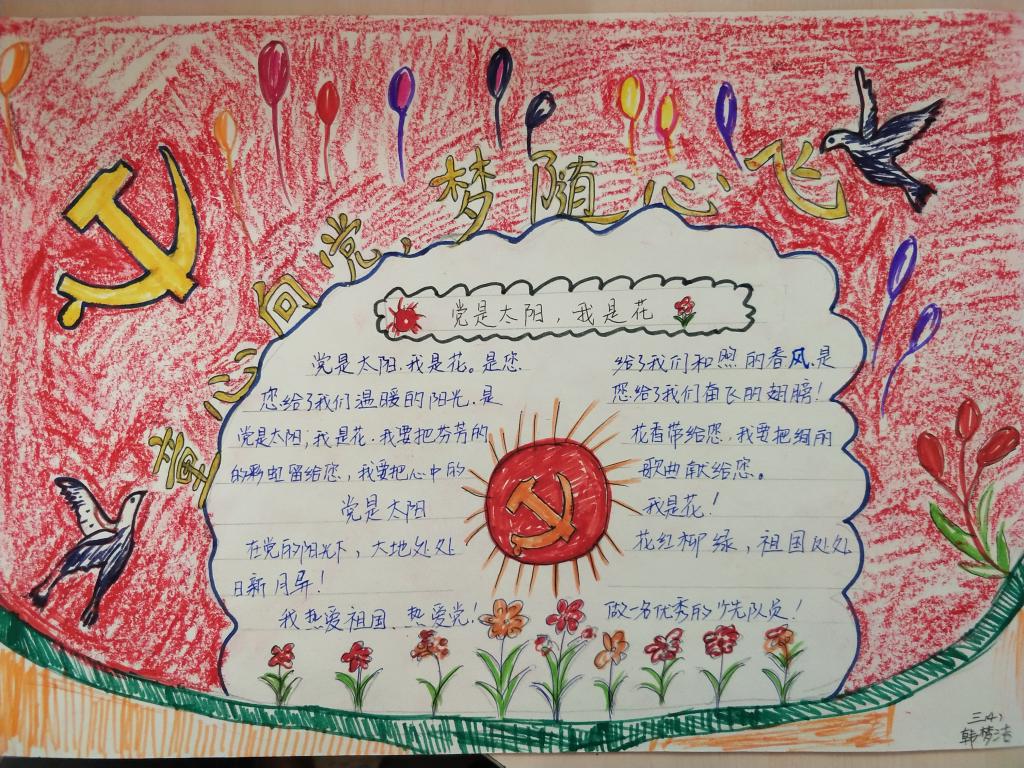 童心向党，梦随心飞
党是太阳，我是花
党是太阳，我是花。是您 给了我们和照的春风，是
您给了我们温暖的阳光，是 您给了我们奋飞的翅膀！
党是太阳，我是花，我要把芬芳的 花香带给您，我要把绚丽
的彩虹留给您，我要把心中的 歌曲献给您。
党是太阳 我是花！
在党的阳光下，大地处处 花红柳绿，祖国处处
日新月异！
我热爱祖国、热爱党！ 做一名优秀的少先队员！
三(4)
韩梦洁